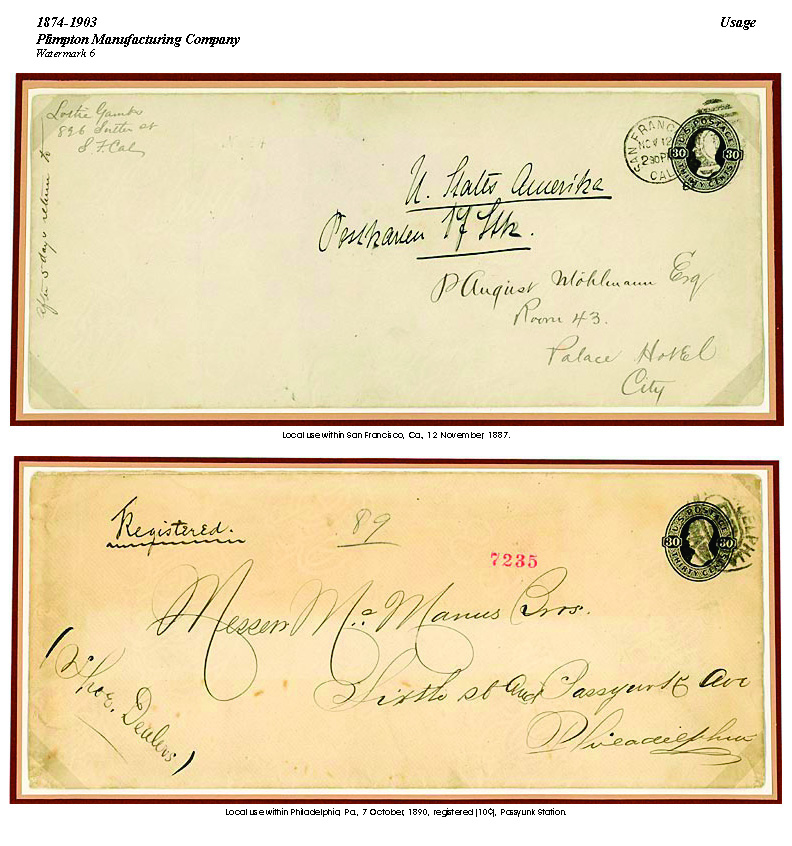 1874-1903
Usage
Plimpton Manufacturing Company
Watermark 6
Lottie
826 Sutter st
S.F. Cal
after 5 days return to
SAN FRANC
NOV 12
230PM
CAL
U.S. POSTAGE
30 30
THIRTY CENTS
U. States Amerika
August Möhlmann Esq
Room 43.
Palace Hotel
City
Local use within San Francisco, Ca., 12 November, 1887.
Registered.
89
7235
U.S. POSTAGE
30 30
THIRTY CENTS
DELPHI
Messers Mc Manus Bros.
Sixth st and Passyunk Ave
Philadelphia
(Shoe Dealers)
Local use within Philadelphia, Pa., 7 October, 1890, registered (10¢), Passyunk Station.